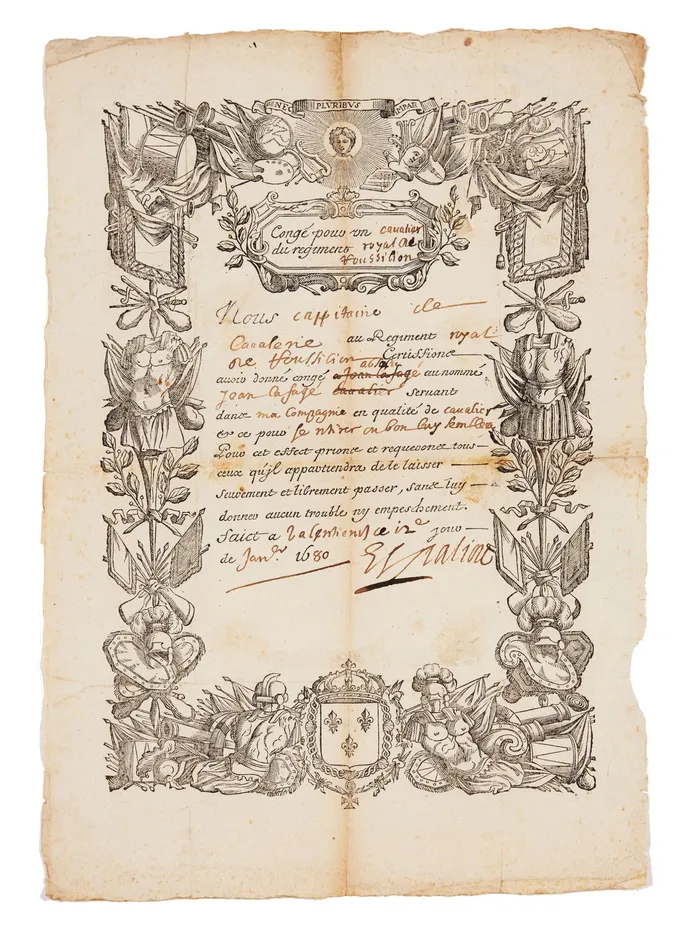 NEC PLVRIBVS IMPAR
Congé pour vn cavalier
du regiment royal de
Roussilion
Nous cappitaine de
Cavalerie au Regiment royal
de Roussilion Certiffions
avoir donné congé absolu a Jean la fage au nommé
Jean la fage cavalier servant
dans ma Compagnie en qualité de cavalier
& ce pour se retirer ou bon luy semblera
Pour cet effect prions et requerons tous
ceux qu'jl appartiendra de le laisser
seurement et librement passer, sans luy
donner aucun trouble ny empeschement.
Faict a Valentienes ce 12e jour
de Janer. 1680